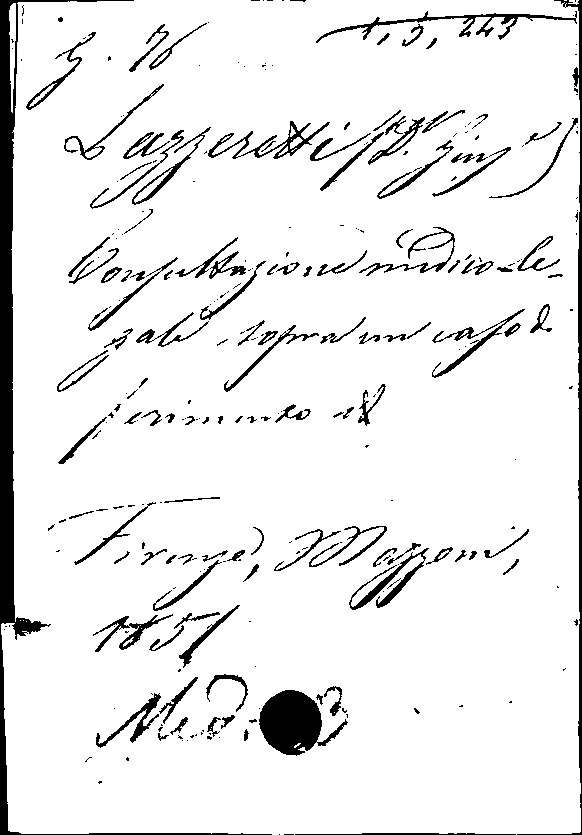 G. 76 1, 5, 243
Lazzeretti (D.r Giusp.e)
Consultazione medico-le-
gale sopra un caso di
ferimento
Firenze, Mazzoni,
1857
Med. 3